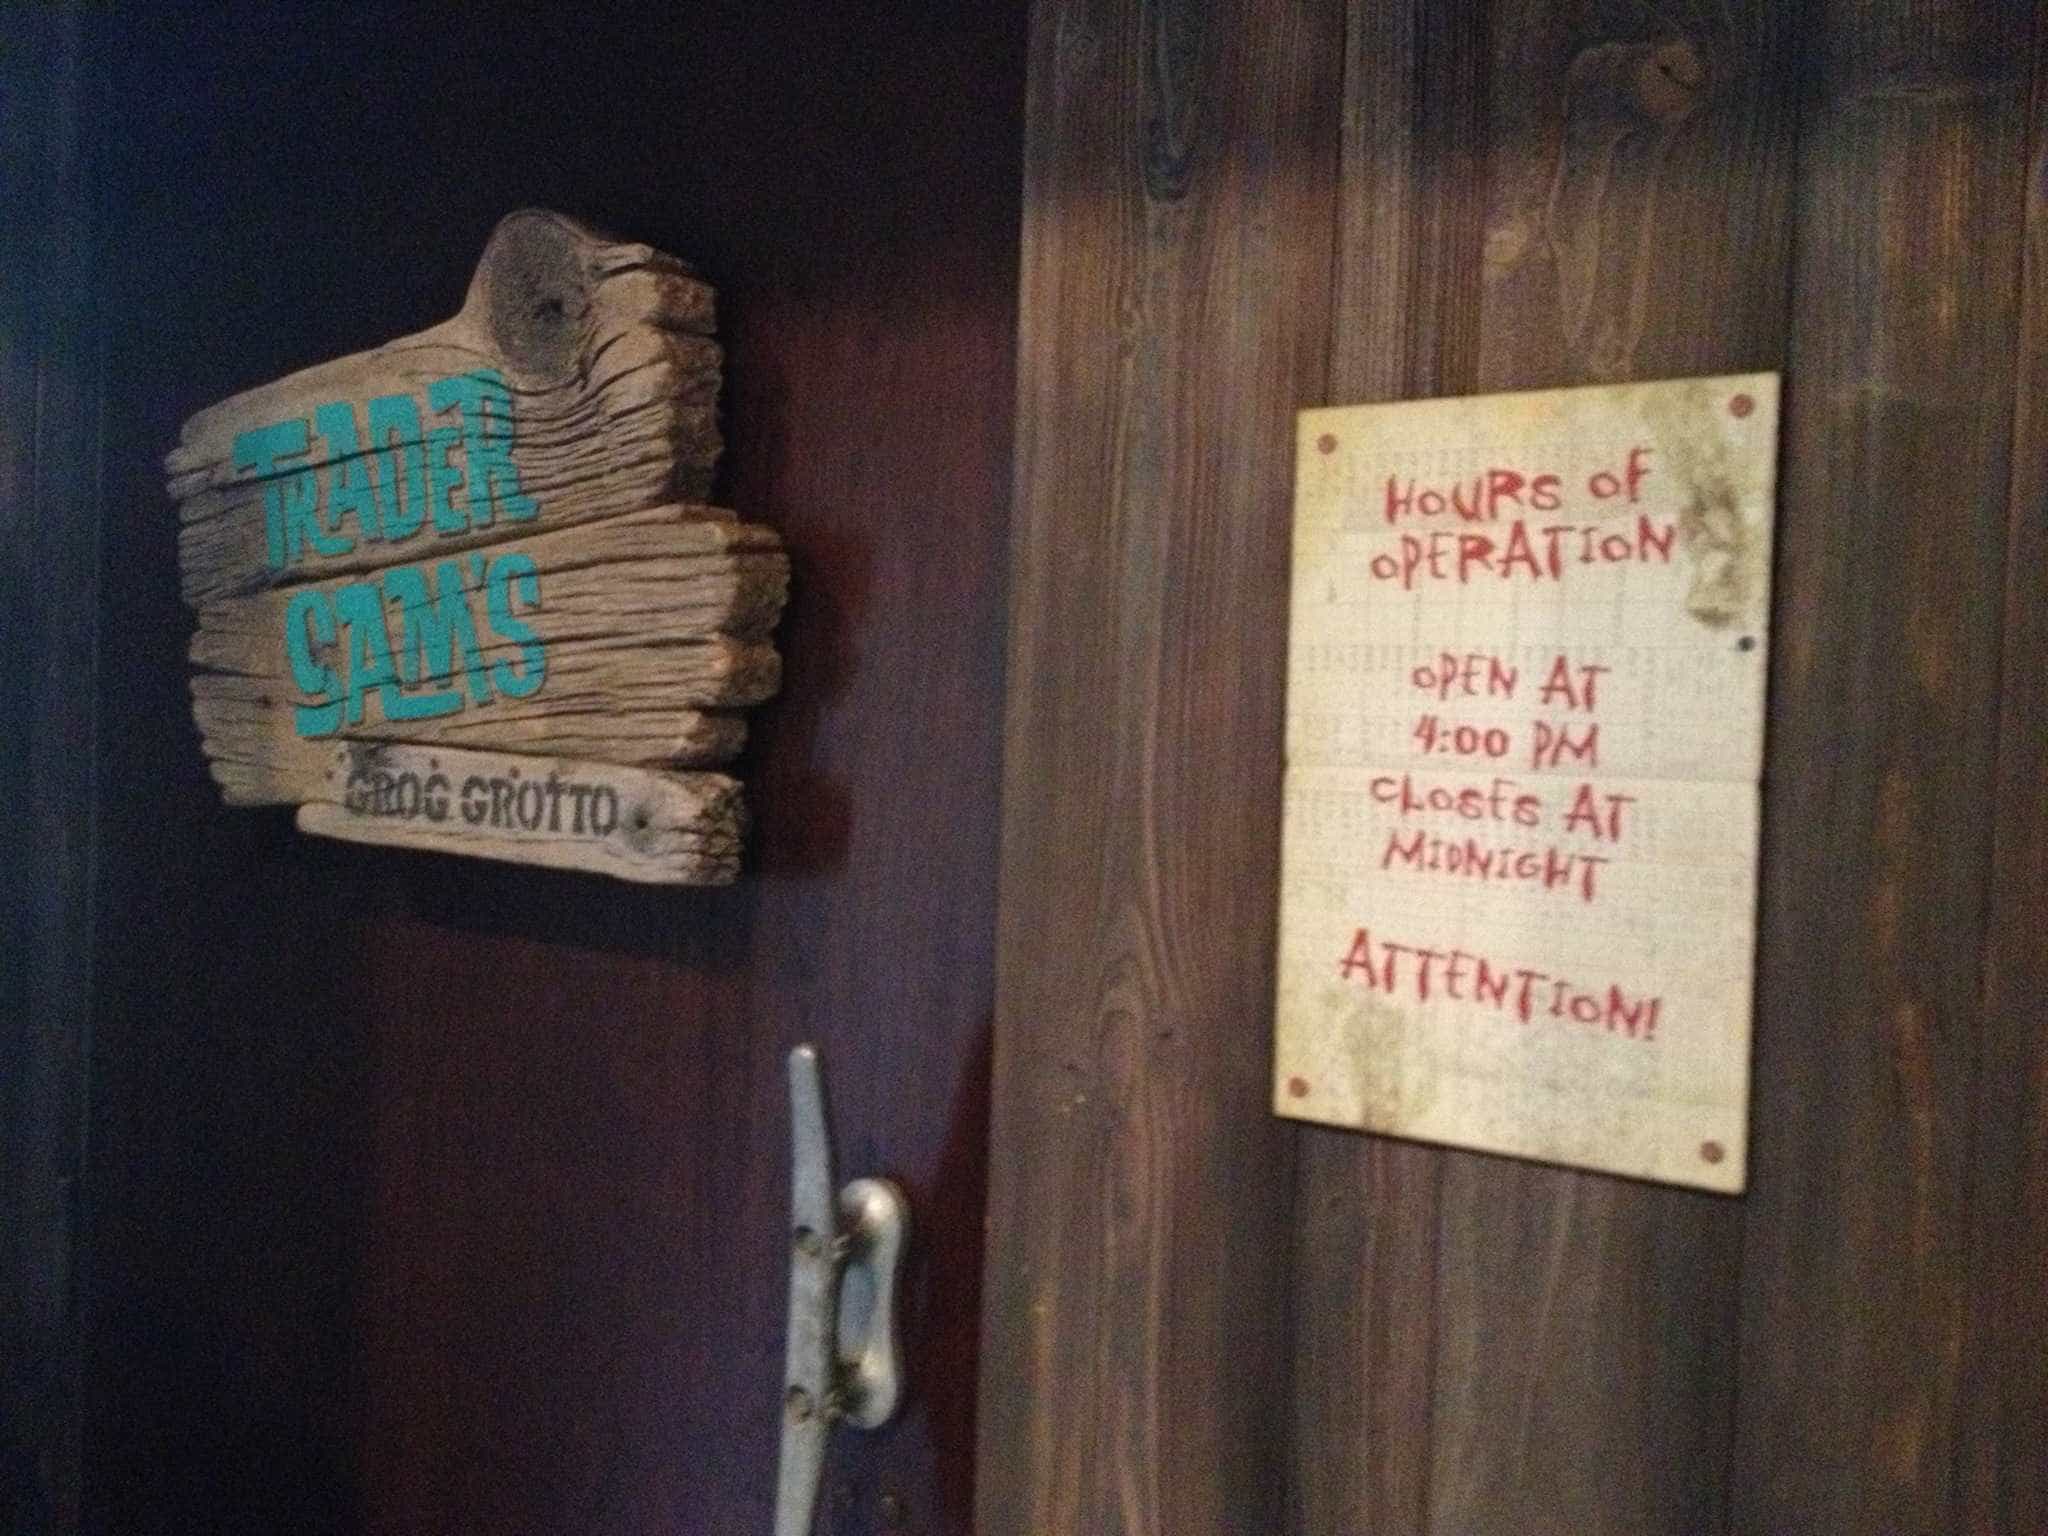 TRADER
SAM'S
GROG GROTTO
HOURS OF
OPERATION
OPEN AT
4:00 PM
CLOSES AT
MIDNIGHT
ATTENTION!